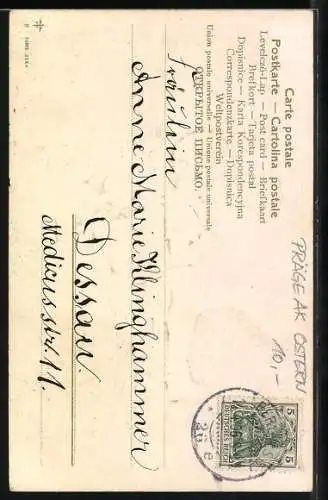 Carte postale
Postkarte — Cartolina postale
Levelező-Lap — Post card — Briefkaart
Brefkort — Tarjeta postal
Dopisnice — Karta Korespondencyjna
Correspondenzkarte — Dopisnica
Weltpostverein
Union postale universelle — Unione postale universale
ОТКРЫТОЕ ПИСЬМО.
PRÄGE AK OSTERN
10,-
5 5
DEUTSCHES REICH
Fräulein
Anne Marie Klinghammer
Dessau.
Medicusstr. 11.